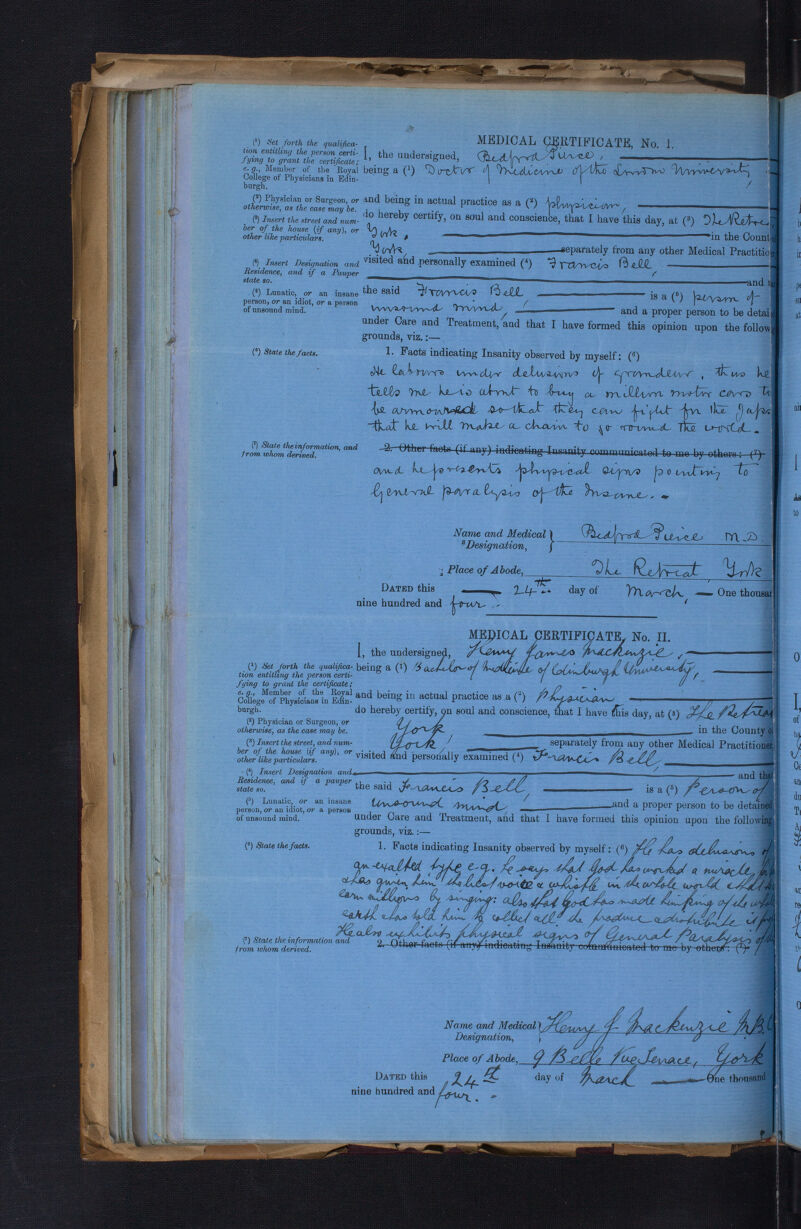 MEDICAL CERTIFICATE, No. I.
(¹) Set forth the qualifica-
tion entitling the person certi-
fying to grant the certificate;
e.g., Member of the Royal
College of Physicians in Edin-
burgh.
I, the undersigned, Bedford Pierce,
being a (¹) Doctor of Medicine of the London University,
(²) Physician or Surgeon, or
otherwise, as the case may be.
and being in actual practice as a (²) physician,
(³) Insert the street and num-
ber of the house (if any), or
other like particulars.
do hereby certify, on soul and conscience, that I have this day, at (³) The Retrea
York, in the Count
York separately from any other Medical Practitio
(⁴) Insert Designation and
Residence, and if a Pauper
state so.
visited and personally examined (⁴) Francis Bell,
and
(⁵) Lunatic, or an insane
person, or an idiot, or a person
of unsound mind.
the said Francis Bell is a (⁵) person of
unsound mind, and a proper person to be detai
under Care and Treatment, and that I have formed this opinion upon the follow
grounds, viz.:—
(⁶) State the facts.
1. Facts indicating Insanity observed by myself: (⁶)
He labours under delusions of grandeur, thus he
tells me he is about to buy a million motor cars to
be armoured so that they can fight for the Japs
that he will make a chain to go round the world.
(⁷) State the information, and
from whom derived.
2. Other facts (if any) indicating Insanity communicated to me by others: (⁷)
and he presents physical signs pointing to
General paralysis of the Insane.
Name and Medical
Designation, Bedford Pierce M.D.
Place of Abode, The Retreat, York
DATED this 24th day of March, One thousan
nine hundred and four.
MEDICAL CERTIFICATE, No. II.
I, the undersigned, Henry James Mackenzie,
(¹) Set forth the qualifica-
tion entitling the person certi-
fying to grant the certificate;
e.g., Member of the Royal
College of Physicians in Edin-
burgh.
being a (¹) Bachelor of Medicine of Edinburgh University,
and being in actual practice as a (²) Physician
do hereby certify, on soul and conscience, that I have this day, at (³) The Retrea
(²) Physician or Surgeon, or
otherwise, as the case may be.
York in the County o
(³) Insert the street, and num-
ber of the house (if any), or
other like particulars.
York, separately from any other Medical Practitione
visited and personally examined (⁴) Francis Bell,
(⁴) Insert Designation and
Residence, and if a pauper
state so.
and th
the said Francis Bell, is a (⁵) Person of
(⁵) Lunatic, or an insane
person, or an idiot, or a person
of unsound mind.
Unsound mind, and a proper person to be detained
under Care and Treatment, and that I have formed this opinion upon the following
grounds, viz.:—
(⁶) State the facts.
1. Facts indicating Insanity observed by myself: (⁶) He has delusions of
an exalted type e.g. he says that God has worked a miracle,
& has given him the best voice & whistle in the whole world & that
earn millions by singing: also that God has made him King of the
earth & has told him to collect all the produce & distribute it
He also exhibits physical signs of General Paralysis of
(⁷) State the information and
from whom derived.
2. Other facts (if any) indicating Insanity communicated to me by others: (⁷)
Name and Medical
Designation, Henry J. Mackenzie M.B.
Place of Abode, 9 Belle Vue Terrace, York
DATED this 24th day of March One thousand
nine hundred and four.